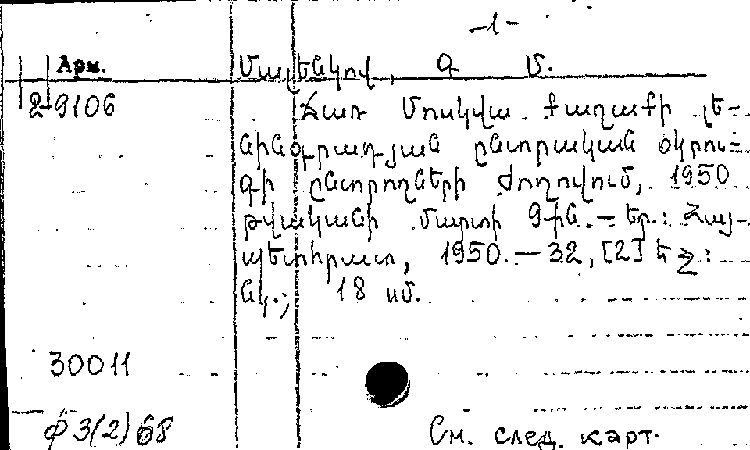 -1-
Арм. Մալենկով, Գ. Մ.
2-9106 Ճառ Մոսկվա քաղաքի լե-
նինգրադյան ընտրական օկրու-
գի ընտրողների ժողովում, 1950
թվականի մարտի 9-ին. — Եր.: Հայ-
պետհրատ, 1950. — 32, [2] եջ:
նկ.; 18 սմ.
30011
ф 3(2)68 См. след. карт.